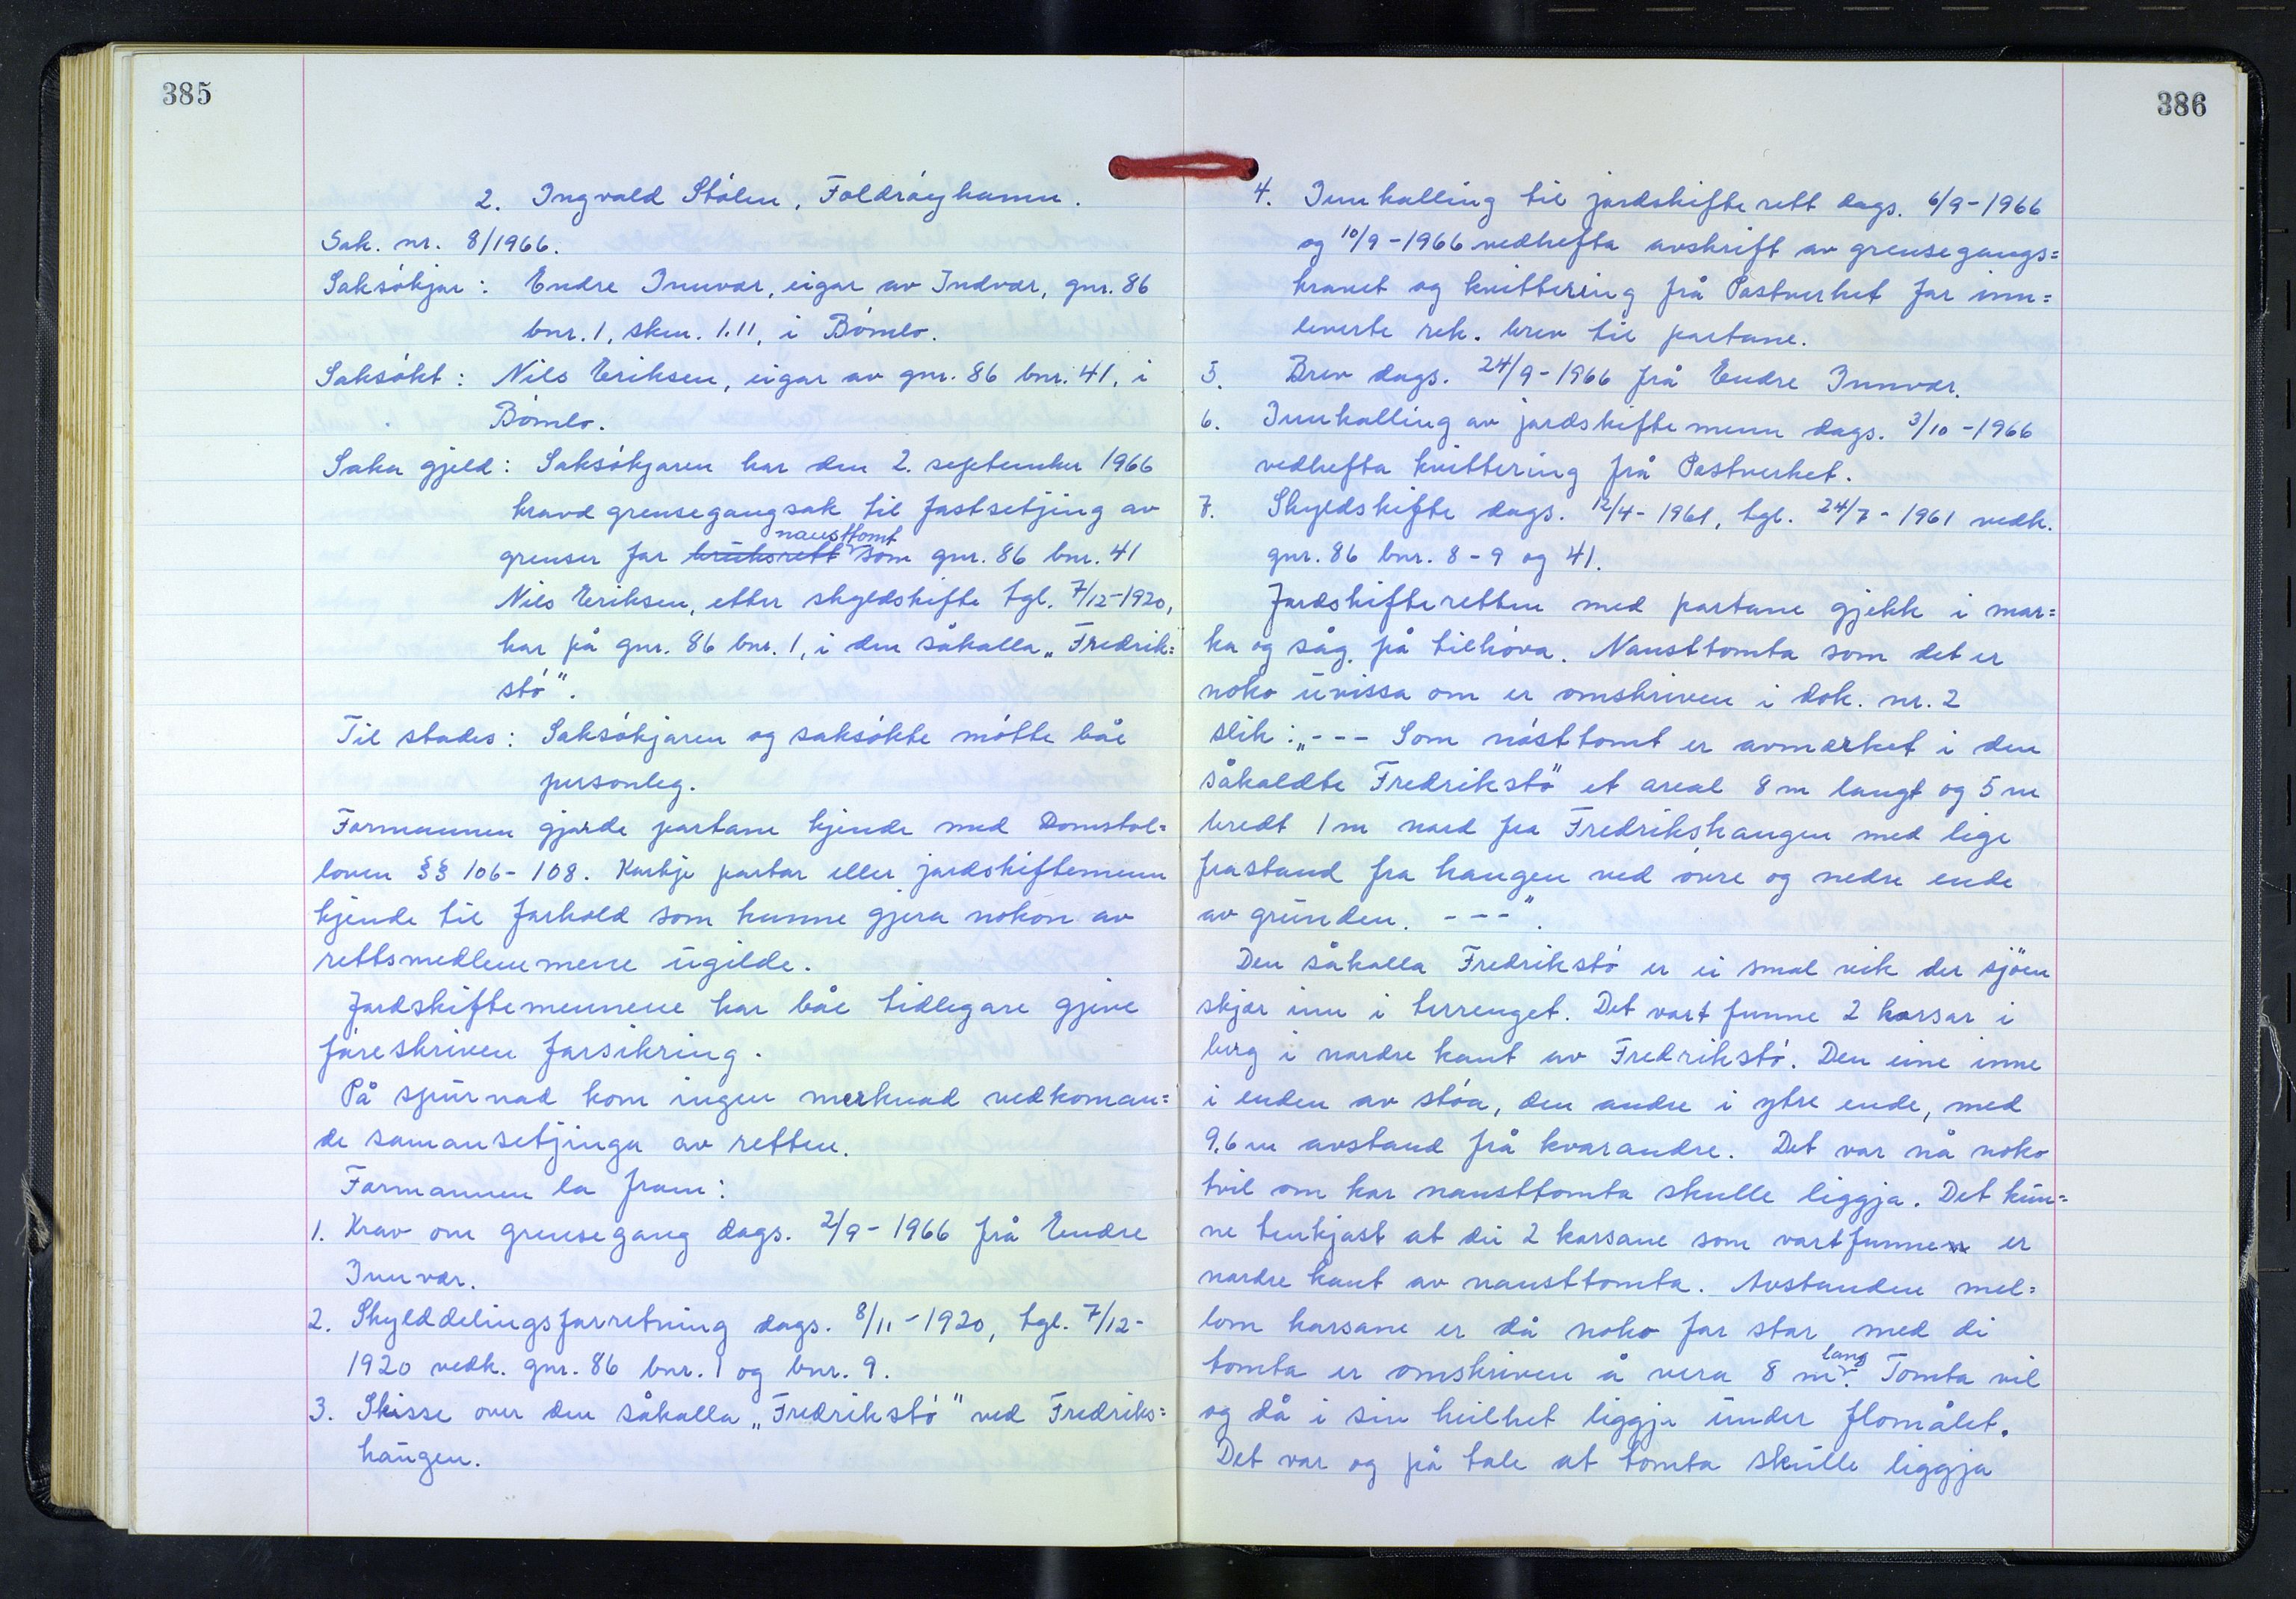 385
2. Ingvald Stólen, Foldróyhamn.
Sak. nr. 8/1966.
Saksókjar: Endre Innvær, eigar av Indvær, gnr. 86
bnr. 1, skm. 1.11, i Bómlo.
Saksókt: Nils Eriksen, eigar av gnr. 86 bnr. 41, i
Bómlo.
Saka gjeld: Saksókjaren har den 2. september 1966
kravd grensegangsak til fastsetjing av
nausttomt
grenser for bruksrett som gnr. 86 bnr. 41
Nils Eriksen, etter skyldskifte tgl. 7/12-1920,
har på gnr. 86 bnr. 1, i den såkalla „Fredrik=
stó".
Til stades: Saksókjaren og saksókte mótte båe
personleg.
Formannen gjorde partane kjende med Domstol=
loven §§ 106-108. Korkje partar eller jordskiftemenn
kjende til forhold som kunne gjera nokon av
rettsmedlemmene ugilde.
Jordskiftemennene har båe tidlegare gjeve
fóreskriven forsikring.
På spurnad kom ingen merknad vedkoman=
de samansetjinga av retten.
Formannen la fram:
1. Krav om grensegang dags. 2/9-1966 frå Endre
Innvær.
2. Skylddelingsforretning dags. 8/11-1920, tgl. 7/12-
1920 vedk. gnr. 86 bnr. 1 og bnr. 9.
3. Skisse over den såkalla „Fredrikstó" ved Fredriks=
haugen.
386
4. Innkalling til jordskifterett dags. 6/9-1966
og 10/9-1966 vedhefta avskrift av grensegangs=
kravet og kvittering frå Postverket for inn=
leverte rek. brev til partane.
5. Brev dags. 24/9-1966 frå Endre Innvær.
6. Innkalling av jordskiftemenn dags. 3/10-1966
vedhefta kvittering frå Postverket.
7. Skyldskifte dags. 12/4-1961, tgl. 24/7-1961 vedk.
gnr. 86 bnr. 8-9 og 41.
Jordskifteretten med partane gjekk i mar=
ka og såg på tilhóva. Nausttomta som det er
noko uvissa om er omskriven i dok. nr. 2
slik: „--- Som nósttomt er avmærket i den
såkaldte Fredrikstö et areal 8 m langt og 5 m
bredt 1 m nord fra Fredrikshaugen med lige
frastand fra haugen ved óvre og nedre ende
av grunden. ---".
Den såkalla Fredrikstó er ei smal vik der sjöen
skjær inn i terrenget. Det vart funne 2 krossar i
berg i nordre kant av Fredrikstó. Den eine inne
i enden av stóa, den andre i ytre ende, med
9,6 m avstand frå kvarandre. Det var nå noko
tvil om kor nausttomta skulle liggja. Det kun=
ne tenkjast at dei 2 korsane som vart funne er
nordre kant av nausttomta. Avstanden mel=
lom korsane er då noko for stor med di
lang
tomta er omskriven å vera 8 m. Tomta vil
og då i sin heilhet liggja under flomålet.
Det var og på tale at tomta skulle liggja